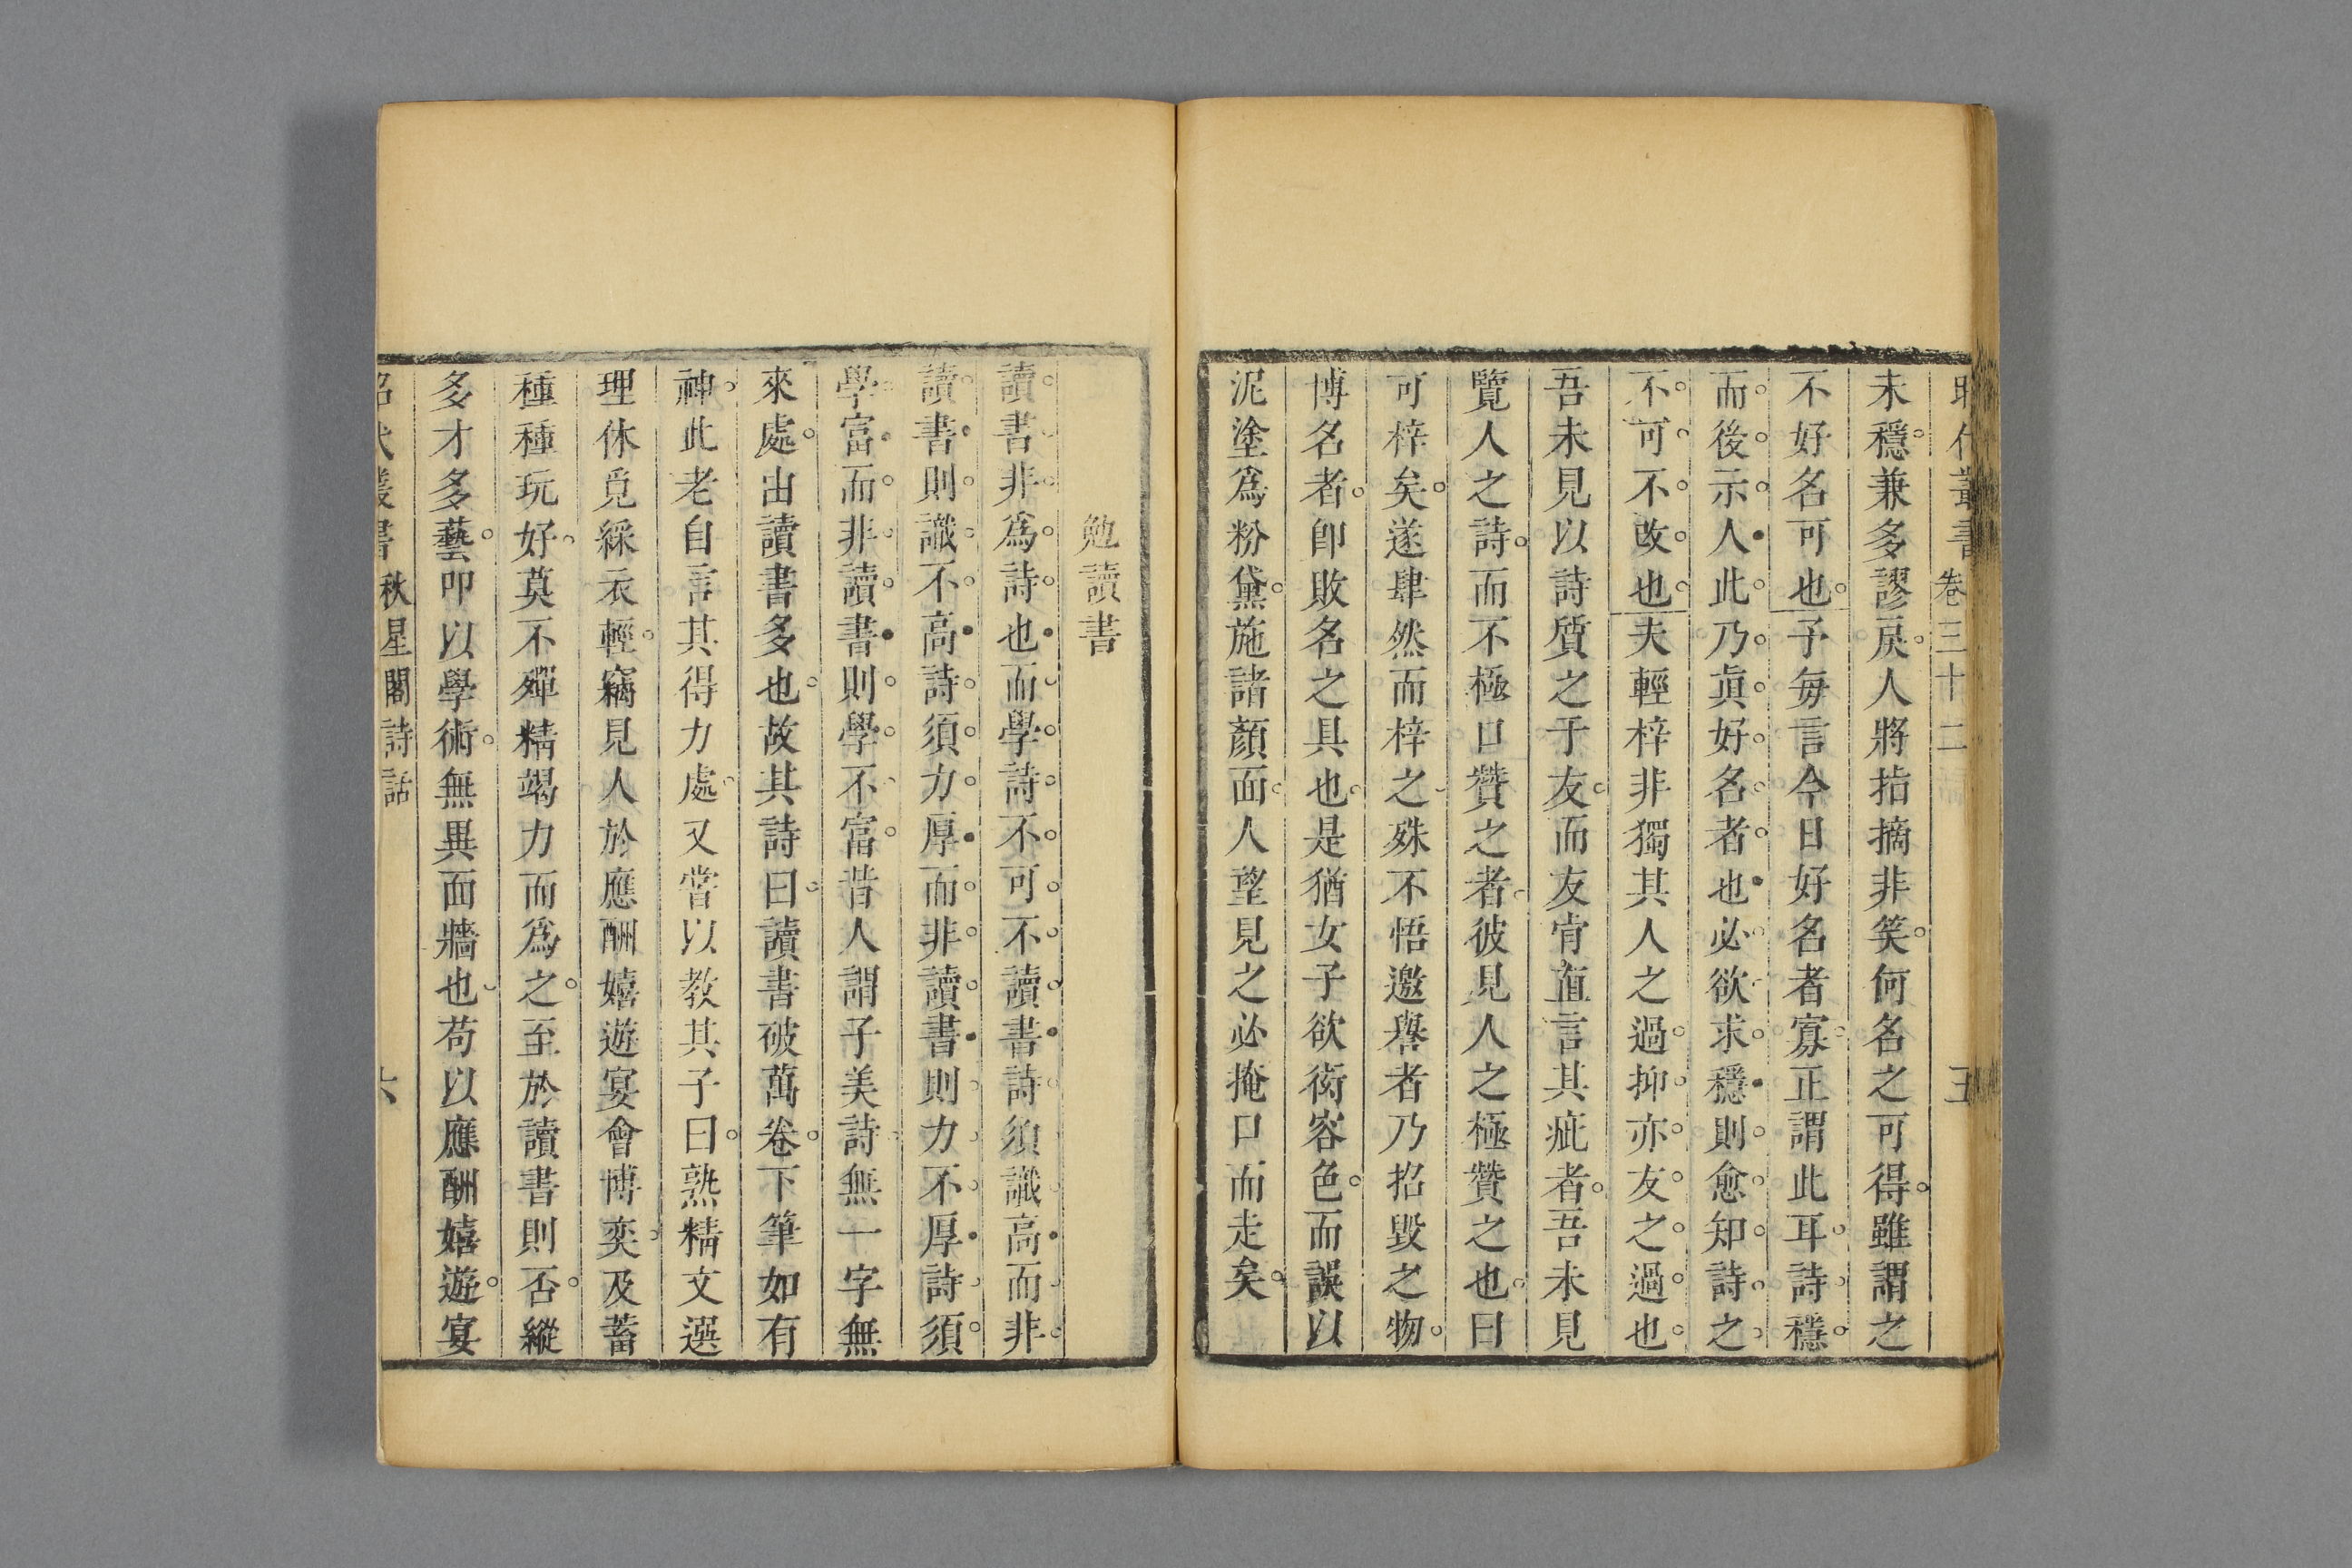 昭代叢書卷三十二 五
未穩兼多謬戾人將指摘非笑何名之可得雖謂之
不好名可也予每言今日好名者寡正謂此耳詩穩
而後示人此乃眞好名者也必欲求穩則愈知詩之
不可不改也夫輕梓非獨其人之過抑亦友之過也
吾未見以詩質之于友而友肯直言其疵者吾未見
覽人之詩而不極口贊之者彼見人之極贊之也曰
可梓矣遂肆然而梓之殊不悟邀譽者乃招毀之物
博名者卽敗名之具也是猶女子欲衒容色而誤以
泥塗爲粉黛施諸顏面人望見之必掩口而走矣
勉讀書
讀書非爲詩也而學詩不可不讀書詩須識高而非
讀書則識不高詩須力厚而非讀書則力不厚詩須
學富而非讀書則學不富昔人謂子美詩無一字無
來處由讀書多也故其詩曰讀書破萬卷下筆如有
神此老自言其得力處又嘗以教其子曰熟精文選
理休覓綵衣輕竊見人於應酬嬉遊宴會博奕及蓄
種種玩好莫不殫精竭力而爲之至於讀書則否縱
多才多藝叩以學術無異面牆也苟以應酬嬉遊宴
昭代叢書 秋星閣詩話 六